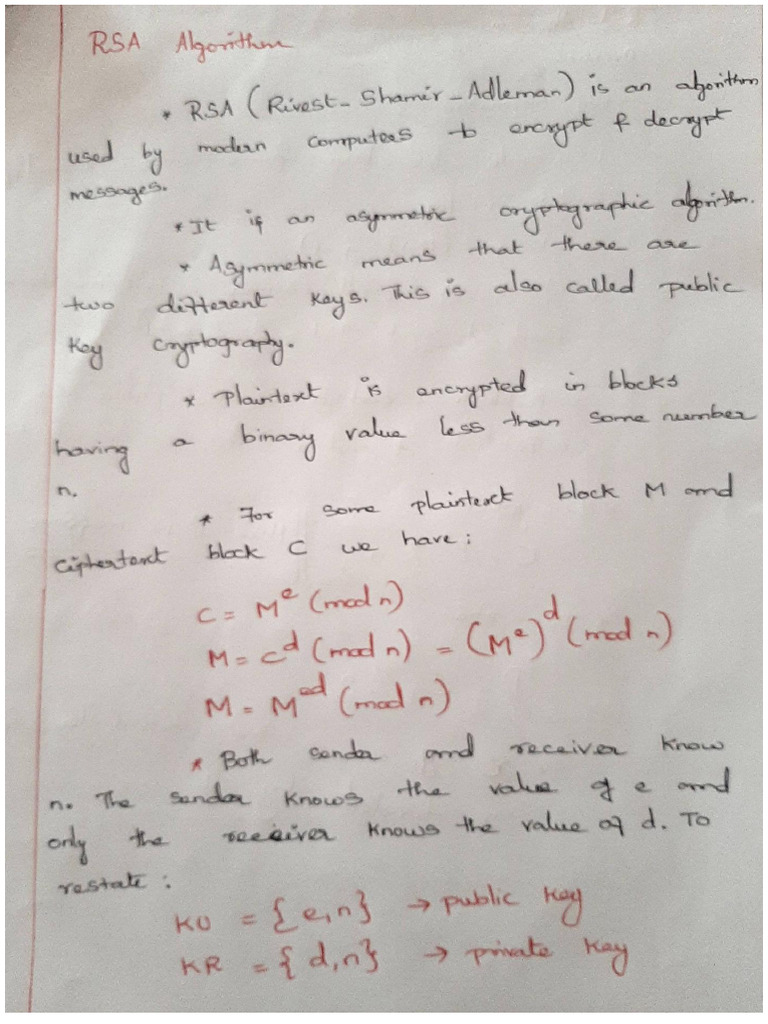 RSA Algorithm
* RSA (Rivest - Shamir - Adleman) is an algorithm
used by modern computers to encrypt & decrypt
messages.
* It is an asymmetric cryptographic algorithm.
* Asymmetric means that there are
two different keys. This is also called public
key cryptography.
* Plaintext is encrypted in blocks
having a binary value less than some number
n.
* For some plaintext block M and
ciphertext block C we have :
C = M^e (mod n)
M = C^d (mod n) = (M^e)^d (mod n)
M = M^ed (mod n)
* Both sender and receiver know
n. The sender knows the value of e and
only the receiver knows the value of d. To
restate :
KU = {e, n} → public key
KR = {d, n} → private key